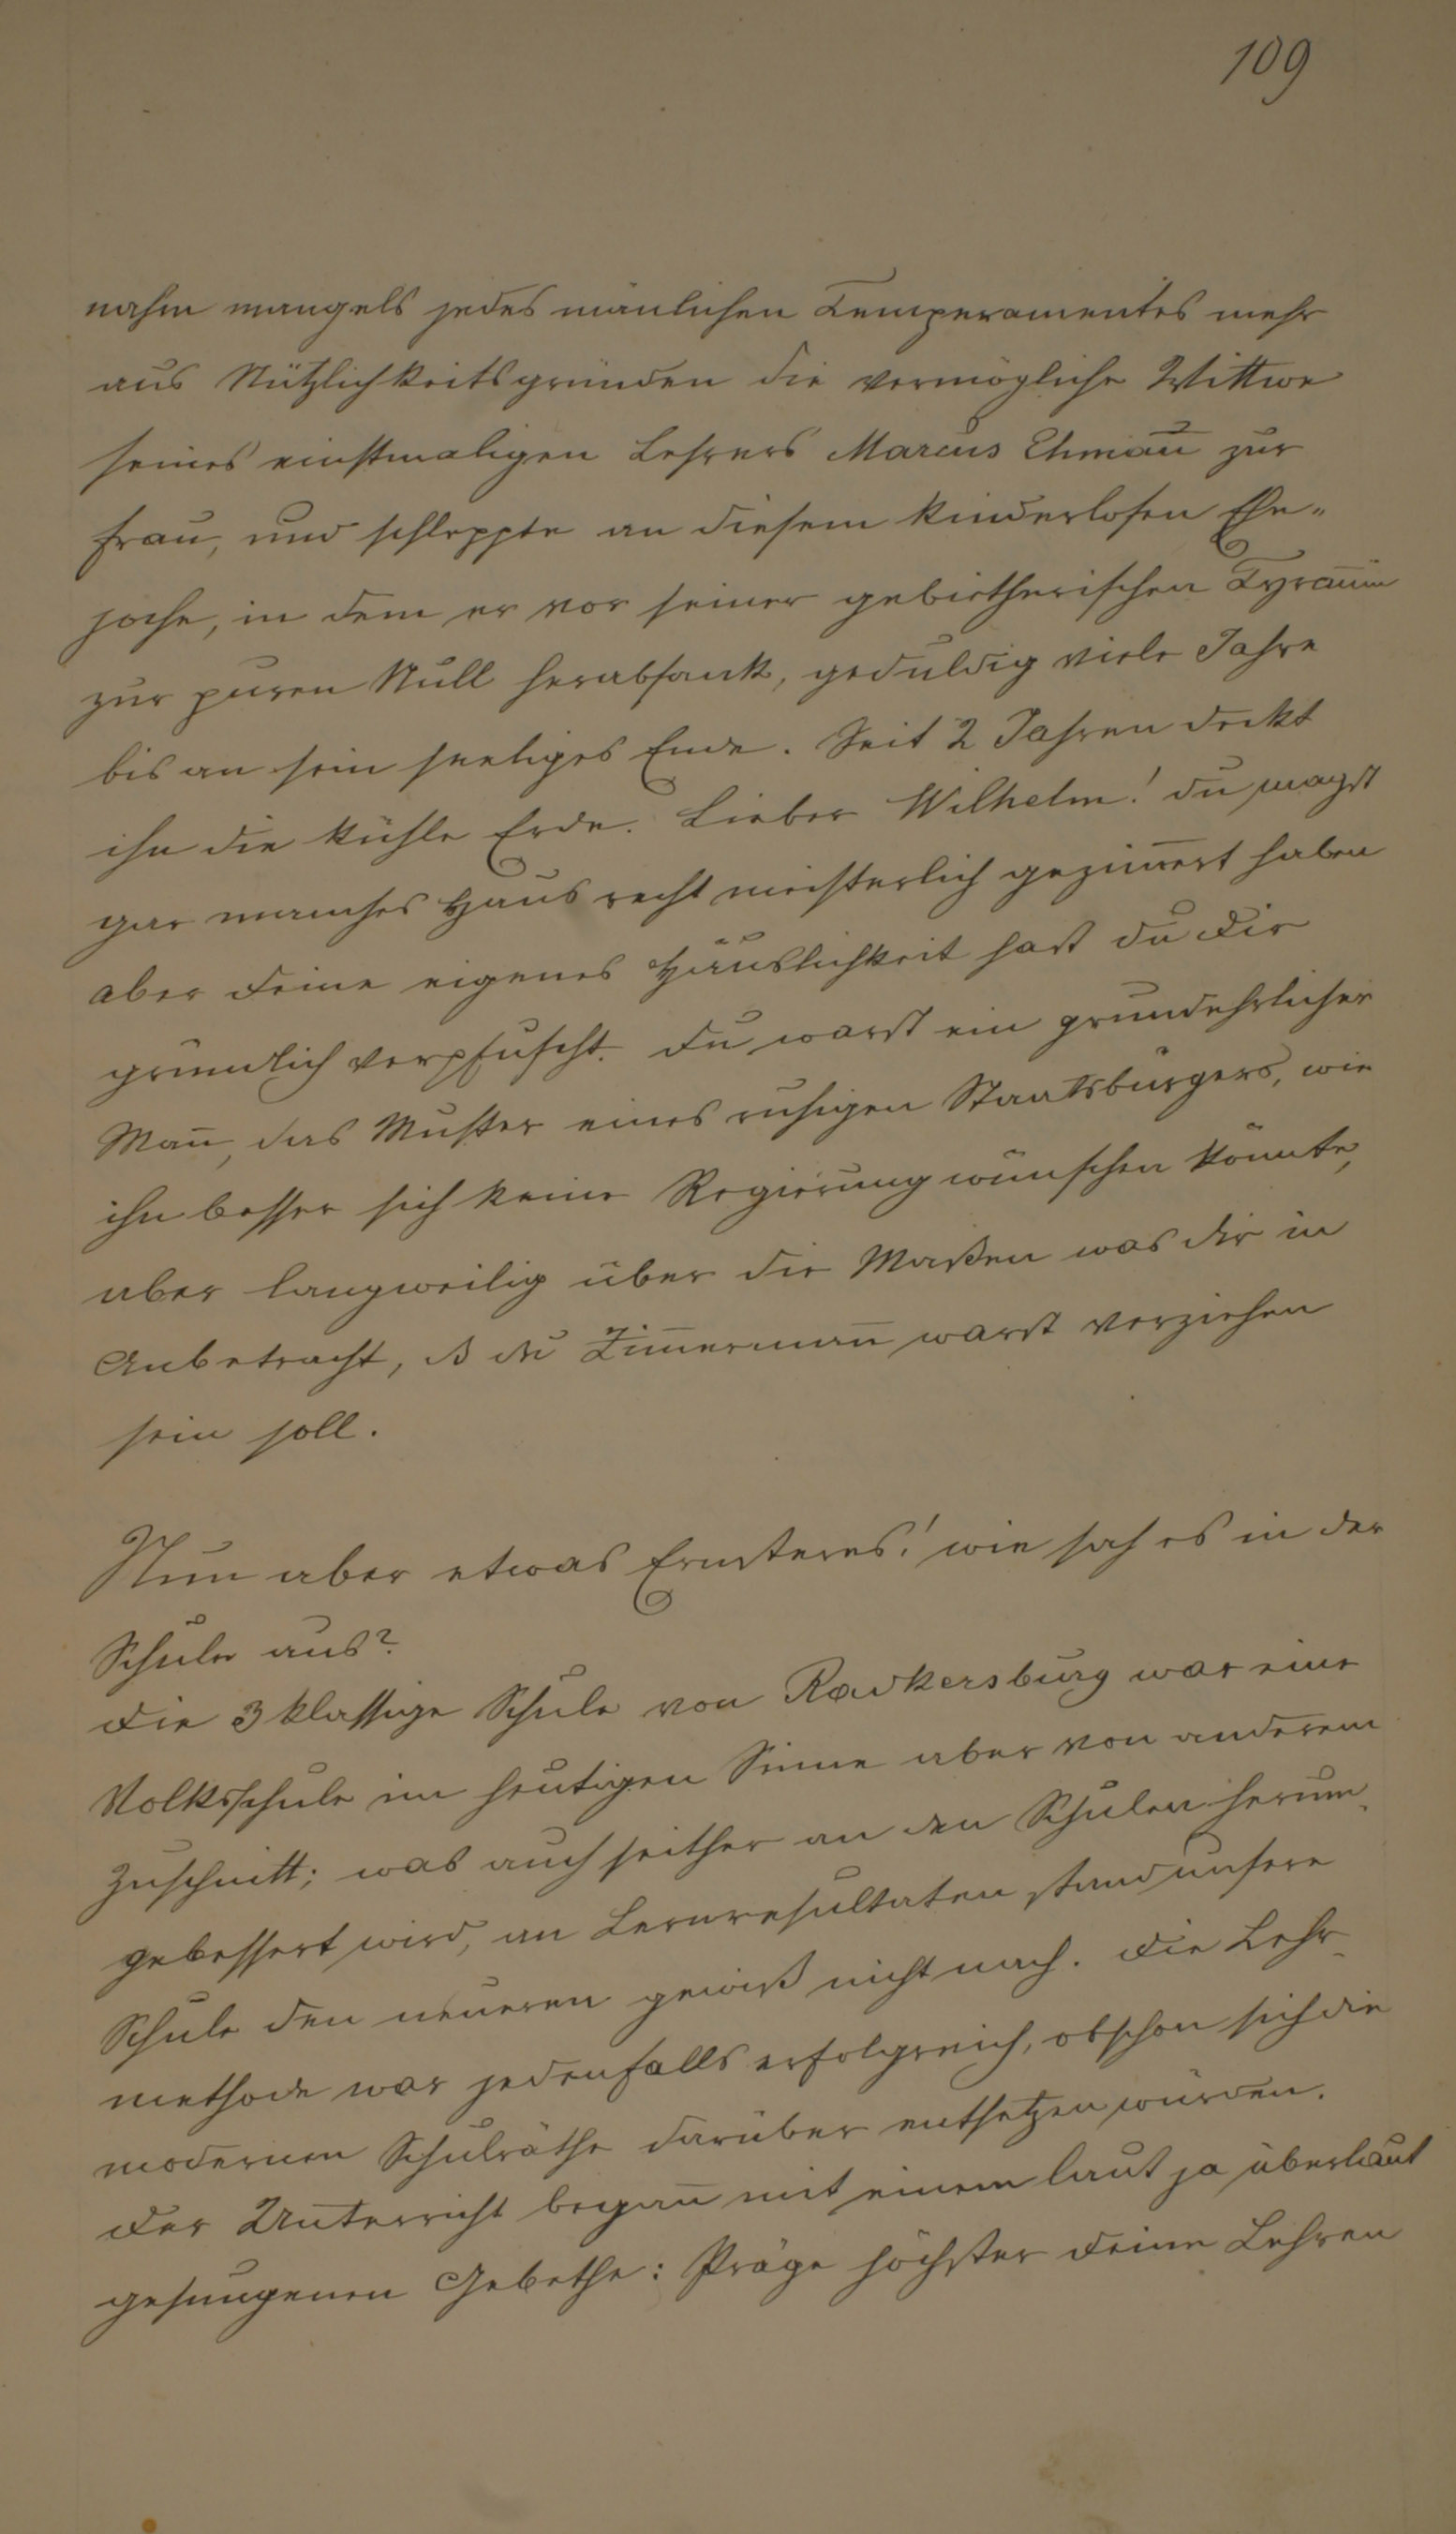 109
nahm mangels jedes mänlichen Temperamentes mehr
aus Nützlichkeitsgründen die vermögliche Wittwe
seines einstmaligen Lehrers Marcus Ehman̄ zur
Frau, und schleppte an diesem kinderlosen Ehe-
joche, in dem er vor seiner gebietherischen Tyran̄in
zur puren Null herabsank, geduldig viele Jahre
bis an sein seeliges Ende. Seit 2 Jahren deckt
ihn die kühle Erde. Lieber Wilhelm! du magst
gar manches Haus recht meisterlich gezim̄ert haben
aber deine eigenes Häuslichkeit hast du dir
gründlich verpfuscht. Du warst ein grundehrlicher
Man̄, das Muster eines ruhigen Staatsbürgers, wie
ihn besser sich keine Regierung wünschen könnte,
aber langweilig über die Maßen was dir in
Anbetracht, ß du Zim̄erman̄ warst verziehen
sein soll.
Nun aber etwas Ernsteres! wie sah es in der
Schule aus?
Die 3 klassige Schule von Radkersburg war eine
Volksschule im heutigen Sinne aber von anderem
Zuschnitt; was auch seither an den Schulen herum-
gebessert wird, an Lernresultaten stand unsere
Schule den neueren gewiß nicht nach. Die Lehr-
methode war jedenfalls erfolgreich, obschon sich die
modernen Schulräthe darüber entsetzen würden.
Der Unterricht began̄ mit einem laut ja überlaut
gesungenen Gebethe: Präge höchster deine Lehren